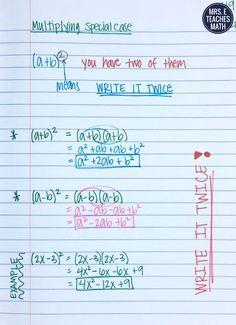 MRS. E
TEACHES
MATH
Multiplying special case
(a+b)² you have two of them
means WRITE IT TWICE
* (a+b)² = (a+b)(a+b)
= a²+ab+ab+b²
= a²+2ab+b²
* (a-b)² = (a-b)(a-b)
= a²-ab-ab+b²
= a²-2ab+b²
WRITE IT TWICE!
EXAMPLE
(2x-3)² = (2x-3)(2x-3)
= 4x²-6x-6x+9
= 4x²-12x+9